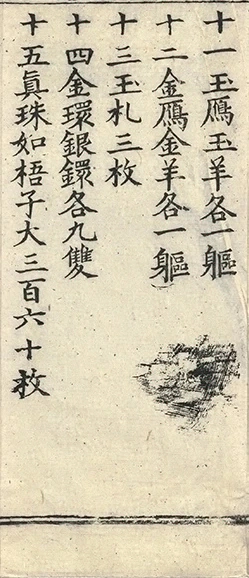 十一玉鴈玉羊各一軀
十二金鴈金羊各一軀
十三玉札三枚
十四金環銀鐶各九雙
十五眞珠如梧子大三百六十枚